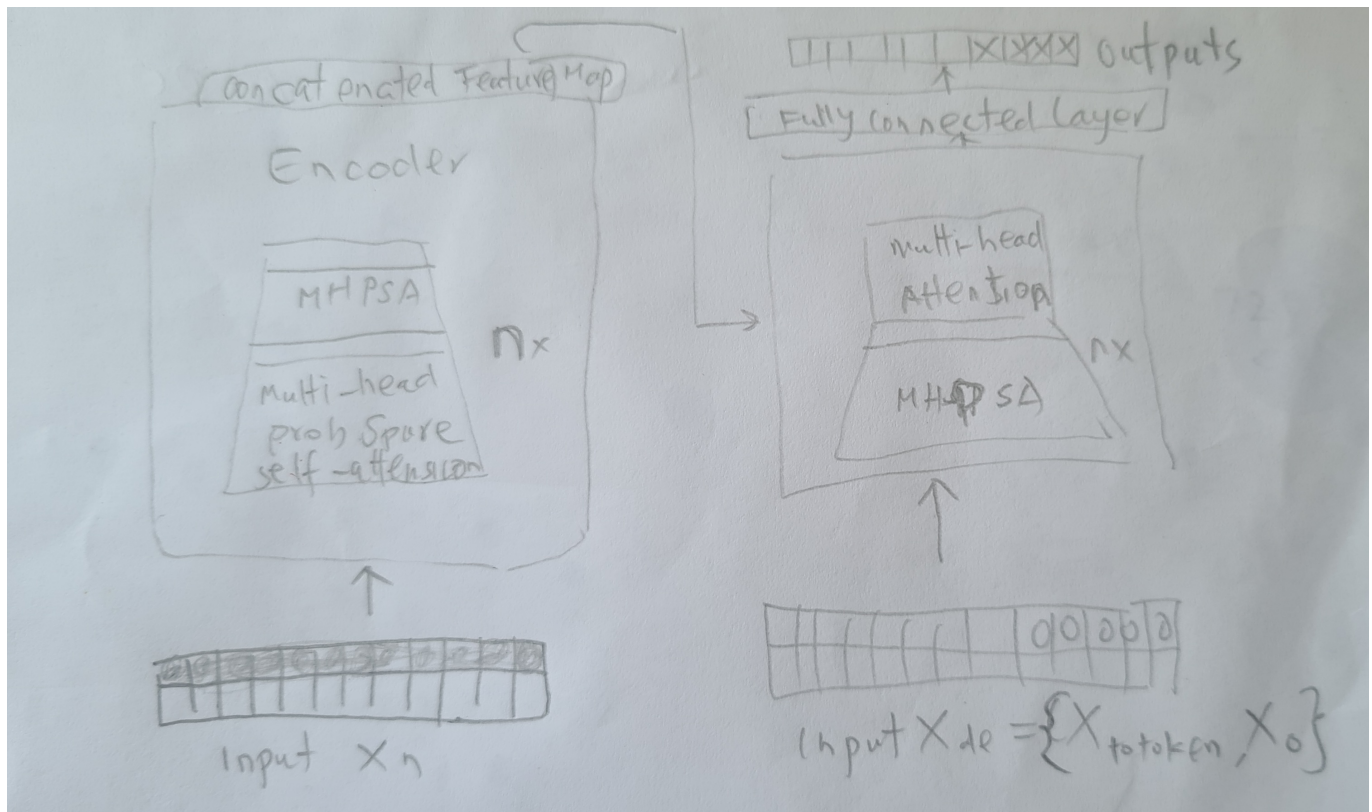 Concatenated Feature Map
Encoder
MHPSA
nx
Multi-head
prob Spare
self-attension
Input Xn
XXXXX outputs
Fully connected Layer
multi-head
Attention
nx
MHPSA
00000
Input Xde = {Xtotoken, X0}